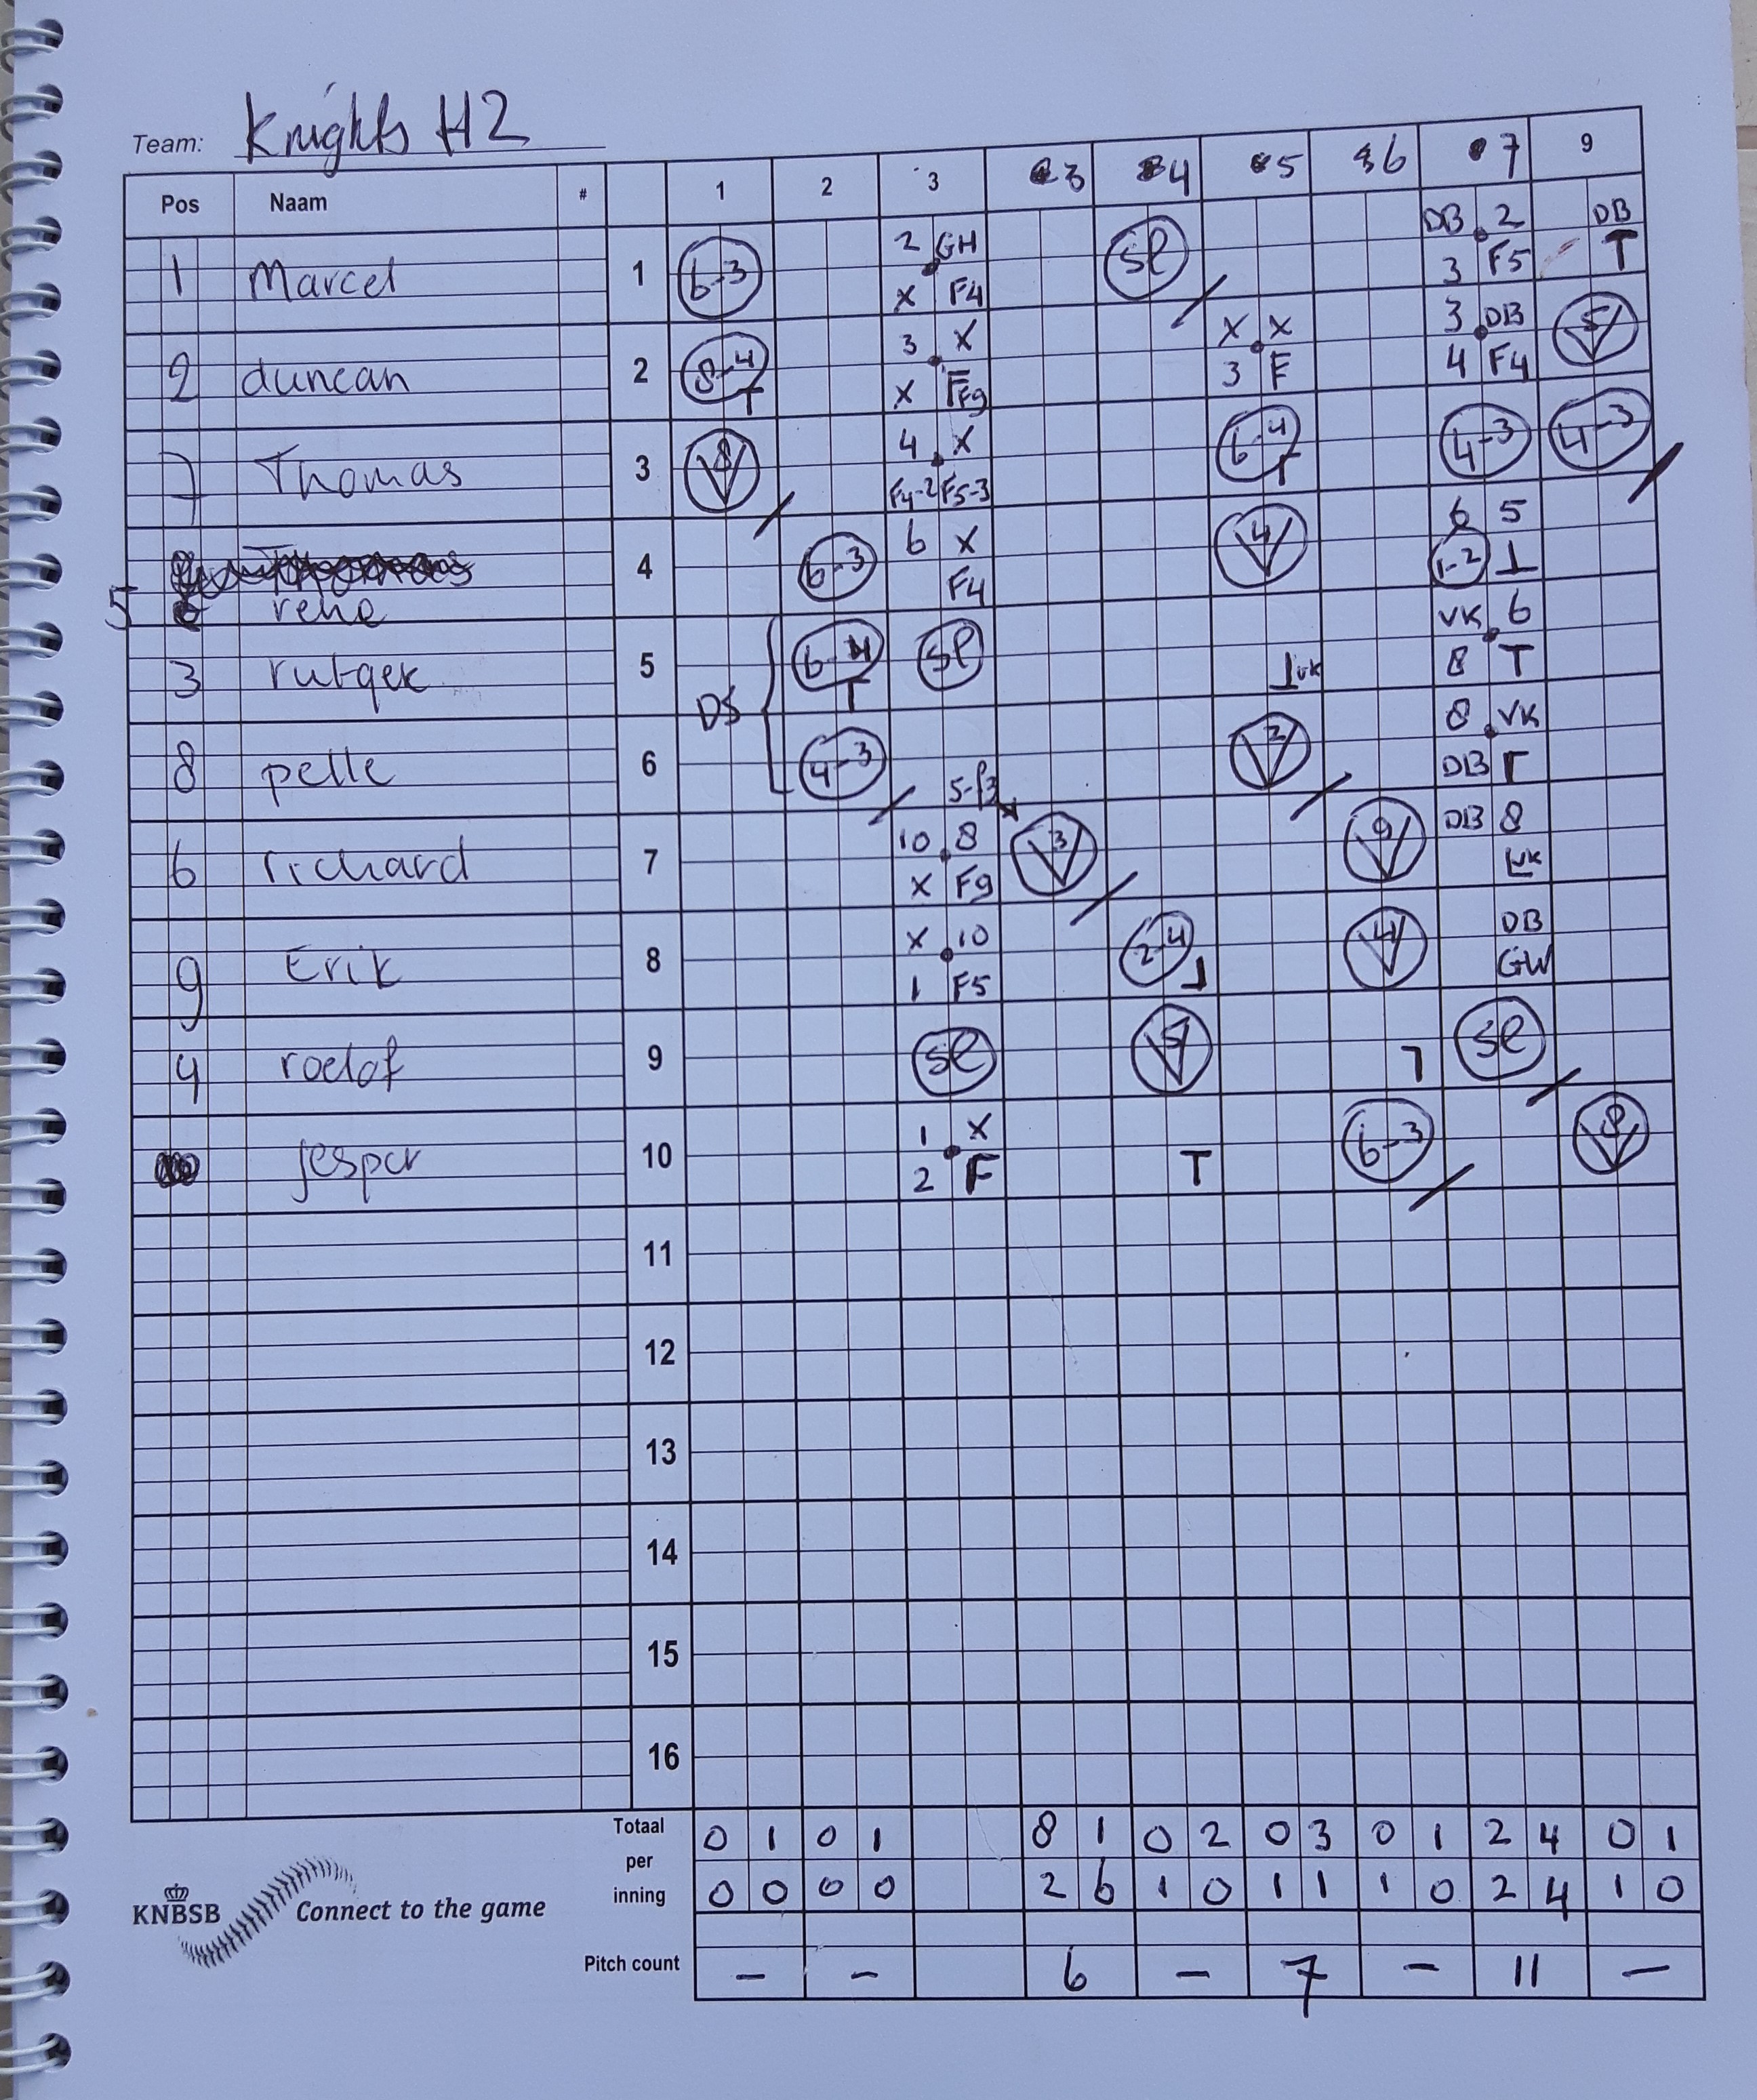 Team: Knights H2
Pos Naam # 1 2 3 3 4 5 6 7 9
1 Marcel 1 6-3 2 GH Sl DB 2 DB
X F4 3 F5 T
2 duncan 2 8-4 3 X X X 3 DB 5
T X F9 3 F 4 F4
7 Thomas 3 8 4 X 6-4 4-3 4-3
F4-2 F5-3 T
4 6-3 6 X 4 6 5
F4 1-2 ⊥
5 rene VK 6
3 rutger 5 DS 6-4 Sl ⊥VK 8 T
T
8 pelle 6 4-3 2 8 VK
5-f3 DB T
6 richard 7 10 8 3 9 DB 8
X F9 VK
9 Erik 8 X 10 2-4 4 DB
1 F5 GW
4 roelof 9 Sl 5 Sl
jesper 10 1 X T 6-3 8
2 F
11
12
13
14
15
16
Totaal per inning 0 1 0 1 8 1 0 2 0 3 0 1 2 4 0 1
0 0 0 0 2 6 1 0 1 1 1 0 2 4 1 0
KNBSB Connect to the game
Pitch count - - 6 - 7 - 11 -